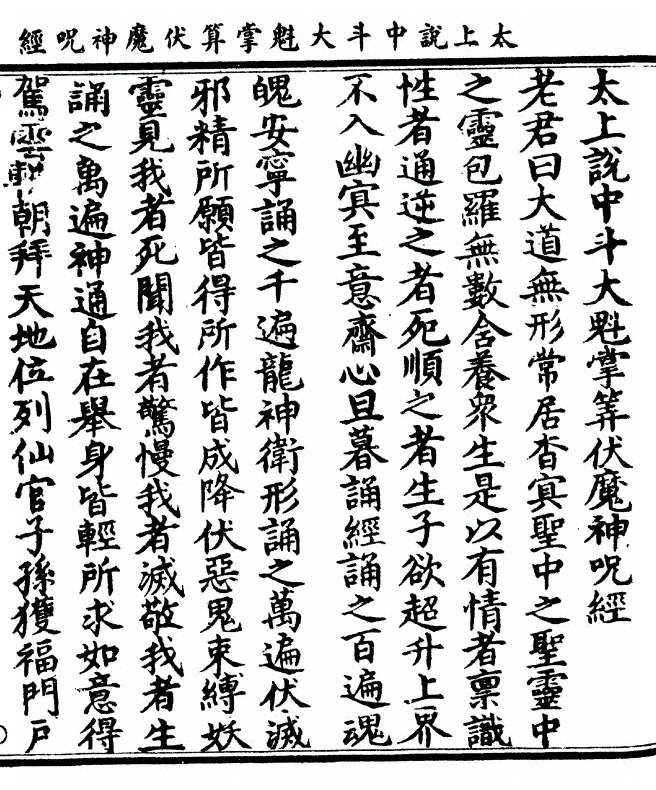 太上說中斗大魁掌算伏魔神呪經
太上說中斗大魁掌筭伏魔神呪經
老君曰大道無形常居杳㝠聖中之聖靈中
之靈包羅無數含養眾生是以有情者禀識
性者通逆之者死順之者生子欲超升上界
不入幽㝠至意齋心旦暮誦經誦之百遍魂
魄安寧誦之千遍龍神衛形誦之萬遍伏滅
邪精所願皆得所作皆成降伏惡鬼束縛妖
靈見我者死聞我者驚慢我者滅敬我者生
誦之萬遍神通自在舉身皆輕所求如意得
駕雲軿朝拜天地位列仙官子孫獲福門戶